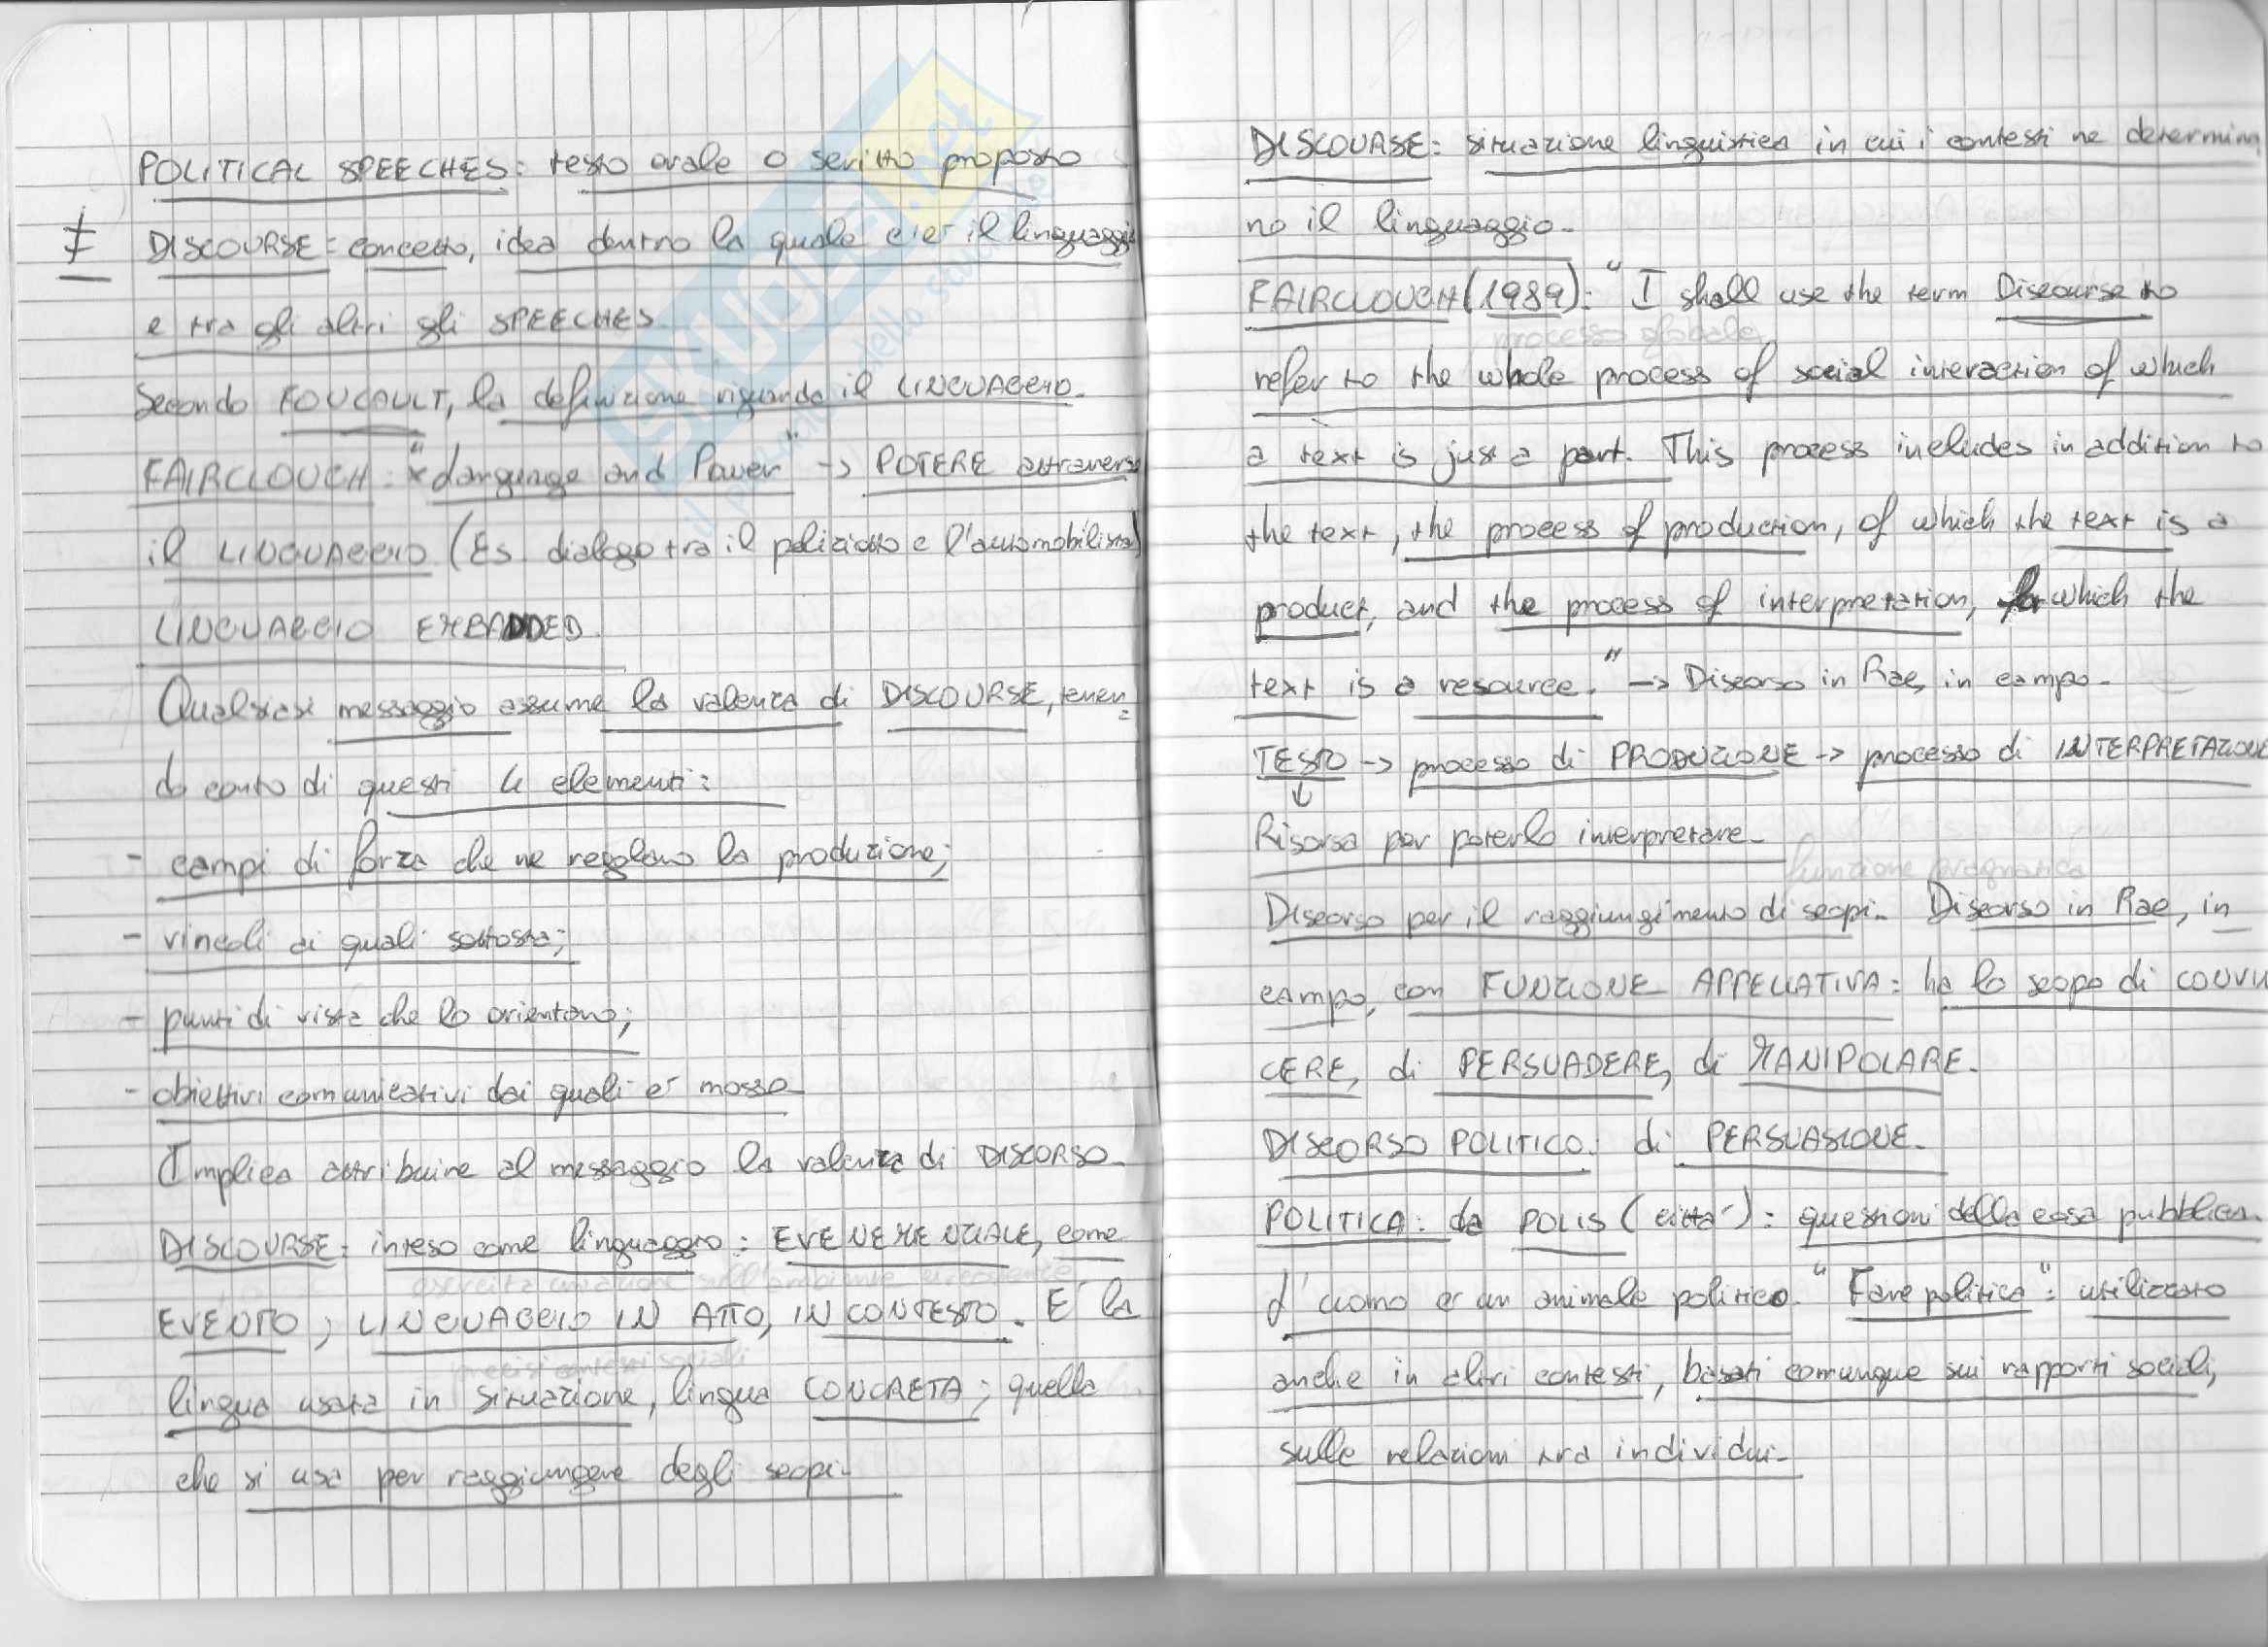 POLITICAL SPEECHES: testo orale o scritto proposto
≠ DISCOURSE = concetto, idea dentro la quale c'e' il linguaggio
e tra gli altri gli SPEECHES.
Secondo FOUCOULT, la definizione riguarda il LINGUAGGIO.
FAIRCLOUGH: "Language and Power" -> POTERE attraverso
il LINGUAGGIO (Es. dialogo tra il poliziotto e l'automobilista)
LINGUAGGIO EMBADDED.
Qualsiasi messaggio assume la valenza di DISCOURSE, tenen=
do conto di questi 4 elementi:
- campi di forza che ne regolano la produzione;
- vincoli ai quali sottosta;
- punti di vista che lo orientano;
- obiettivi comunicativi dai quali e' mosso
Implica attribuire al messaggio la valenza di DISCORSO.
DISCOURSE: inteso come linguaggio: EVENEMENZIALE, come
esercita un'azione sull'ambiente circostante
EVENTO; LINGUAGGIO IN ATTO, IN CONTESTO. E' la
precisi contesti sociali
lingua usata in situazione, lingua CONCRETA; quella
che si usa per raggiungere degli scopi.
DISCOURSE: situazione linguistica in cui i contesti ne determina
no il linguaggio.
FAIRCLOUGH (1989): "I shall use the term Discourse to
processo globale
refer to the whole process of social interaction of which
a text is just a part. This process includes in addition to
the text, the process of production, of which the text is a
product, and the process of interpretation, for which the
text is a resource." -> Discorso in Rae, in campo.
TESTO -> processo di PRODUZIONE -> processo di INTERPRETAZIONE
↓
Risorsa per poterlo interpretare.
funzione pragmatica
Discorso per il raggiungimento di scopi. Discorso in Rae, in
campo, con FUNZIONE APPELLATIVA: ha lo scopo di CONVIN
CERE, di PERSUADERE, di MANIPOLARE.
DISCORSO POLITICO: di PERSUASIONE.
POLITICA: da POLIS (citta'): questioni della cosa pubblica.
L'uomo e' un animale politico. "Fare politica": utilizzato
anche in altri contesti, basati comunque sui rapporti sociali,
sulle relazioni tra individui.
SKUOLA.net
il portale dello studente